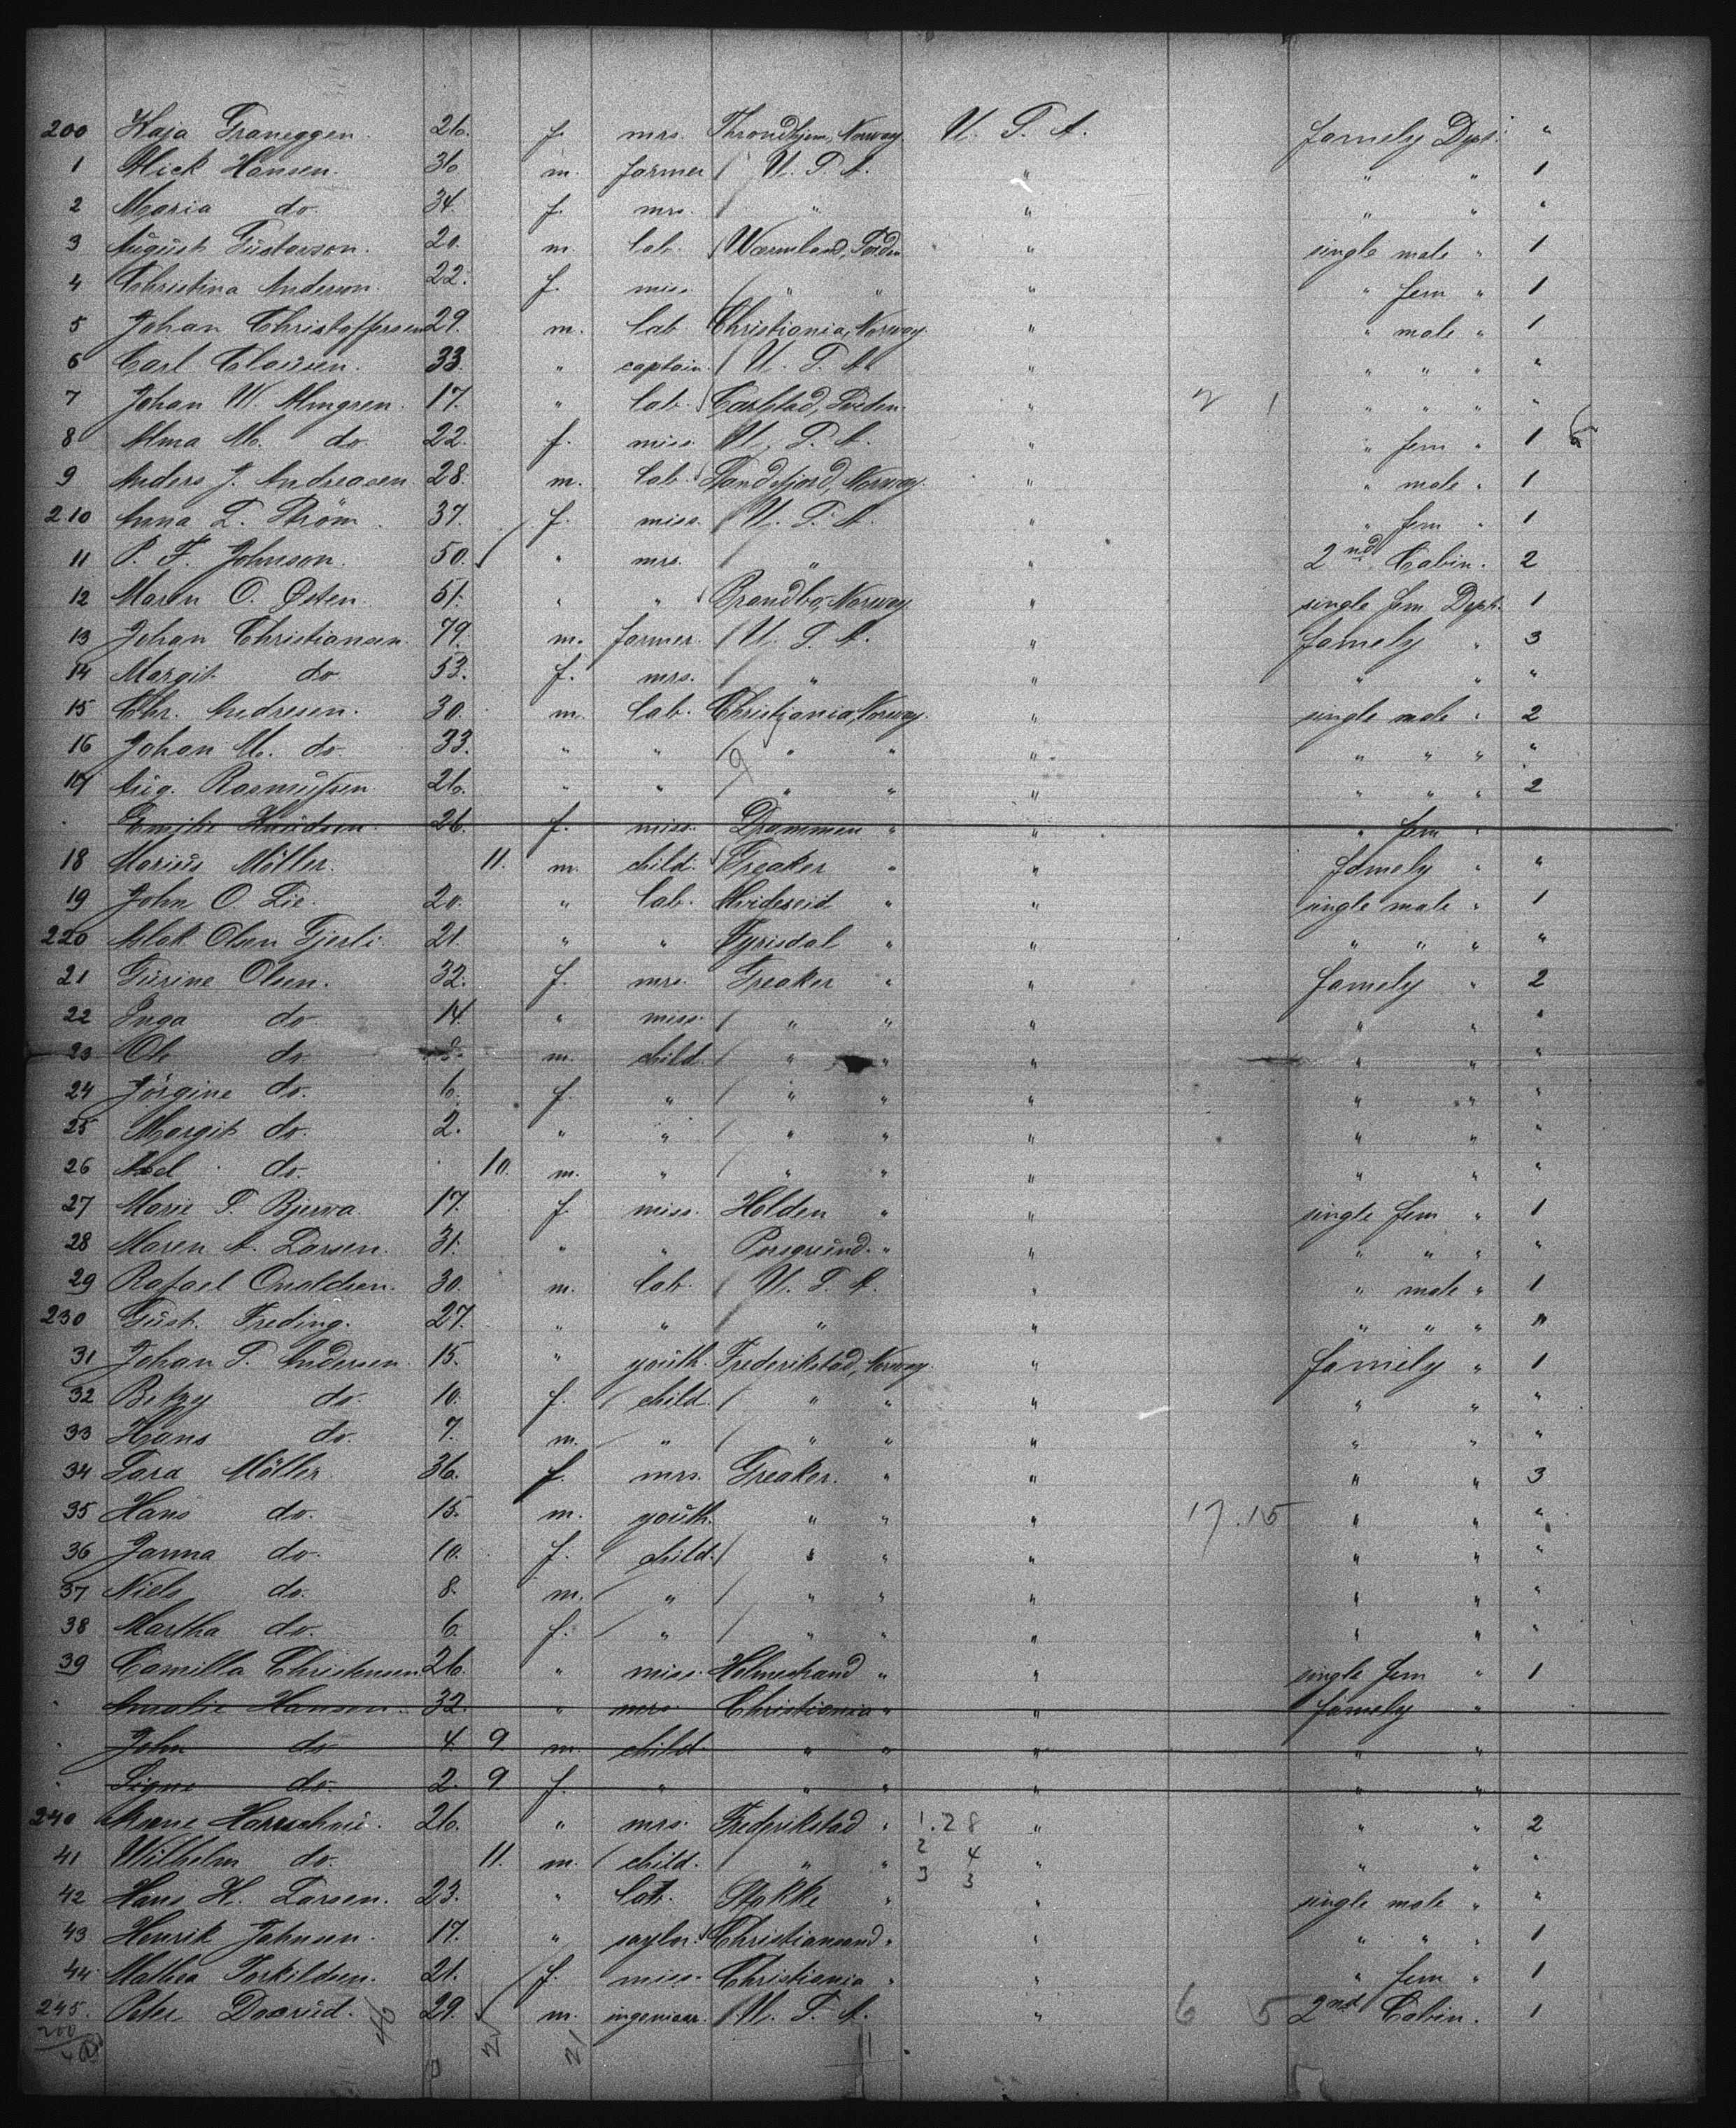 200 Kaja Graneggen. 26. f. mrs. Throndhjem, Norway. U. S. A. famely Dept. "
1 Mick Hansen. 36 m. farmer / U. S. A. " " " 1
2 Maria do. 34. f. mrs. / " " " " "
3 August Gustavson. 20. m. lab. Wermland, Sveden " single male " 1
4 Christina Anderson. 22. f. miss. / " " " " fem " 1
5 Johan Christoffersen 29. m. lab. Christiania, Norway. " " male " 1
6 Carl Clausen. 33. " captain. / U. S. A. " " " " "
7 Johan W. Almgren. 17. " lab. Carlstad, Sveden. " 2 1 " " " "
8 Alma M. do. 22. f. miss. U. S. A. " " fem " 1
9 Anders J. Andreasen. 28. m. lab. Sandefjord, Norway. " " male " 1
210 Anna L. Ström. 37. / f. miss. / U. S. A. " " fem " 1
11 P. F. Johnson. 50. " mrs. / " " 2nd Cabin. 2
12 Maren O. Østen. 51. " " Brandbo, Norway. " single fem Dept. 1
13 Johan Christiansen. 79. m. farmer. / U. S. A. " famely " 3
14 Margit do. 53. f. mrs. / " " " " "
15 Chr. Andresen. 30. m. lab. Christiania, Norway. " single male " 2
16 Johan M. do. 33. " " / " " " " " " "
17 Aug. Rasmussen. 26. " " / " " " " " " 2
Emilie Knudsen. 26. f. miss. Drammen " " " fem "
18 Marius Möller. 11. m. child. Greaker " " famely " "
19 John O. Lie. 20. " lab. Hvideseid " " single male " 1
220 Aslak Olsen Gjerli 21. " " Fyrisdal " " " " " "
21 Gurine Olsen. 32. f. mrs. Greaker " " famely " 2
22 Inga do. 14. " miss. / " " " " " "
23 Ole do. m. child. / " " " " " "
24 Jörgine do. 6. f. " / " " " " " "
25 Margit do. 2. " " / " " " " " "
26 Axel do. 10. m. " / " " " " " "
27 Marie S. Bjerva. 17. f. miss. Holden " " single fem " 1
28 Maren A. Larsen. 31. " " Porsgrund. " " " " " "
29 Rafael Onoldsen. 30. m. lab. / U. S. A. " " male " 1
230 Gust. Freding. 27. " " / " " " " " "
31 Johan S. Andersen. 15. " youth. Frederikstad, Norway. " family " 1
32 Betzy do. 10. f. / child. / " " " " " "
33 Hans do. 7. m. / " / " " " " " "
34 Lara Möller. 36. f. mrs. Greaker. " " " " 3
35 Hans do. 15. m. youth. " " " 17.15 " " "
36 Janna do. 10. f. / child. / " " " " " "
37 Niels do. 8. m. / " / " " " " " "
38 Martha do. 6. f. / " / " " " " " "
39 Camilla Christensen 26. " miss. Holmestrand " " single fem " 1
Amalie Hansen. 32. " mrs. Christiania " " famely "
John do 4. 9. m. child. " " " " "
Signe do. 2. 9. f. " " " " " "
240 26. " mrs. Fredrikstad " 1.28 " " " 2
41 Wilhelm do. 11. m. / child. / " " 2 4 " " " "
3 3
42 Hans H. Larsen. 23. " lab. Stokke " " single male " "
43 Henrik Johnsen. 17. " saylor. Christiansand " " " " " 1
44 Mathea Torkildsen. 21. / f. miss. Christiania " " " fem " 1
245. Peter Daarud. 29. m. ingeniear. / U. S. A. " 6 5 2nd Cabin. 1
200 46 21 21 11